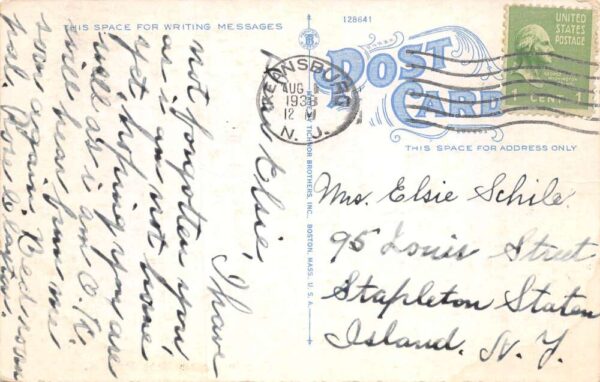 THIS SPACE FOR WRITING MESSAGES
128641
POST
CARD
UNITED
STATES
POSTAGE
1 CENT 1
KEANSBURG
AUG
1938
12 M
N. J.
THIS SPACE FOR ADDRESS ONLY
TICHNOR BROTHERS, INC. BOSTON, MASS. U.S.A.
Dear Elsie,
I have
not forgotten you,
as i am not home
yet, hoping you are
well as i am O.K.
will hear from me
soon again.
pal. Rose
Mrs. Elsie Schile.
95 Louis Street
Stapleton Staten
Island. N. Y.